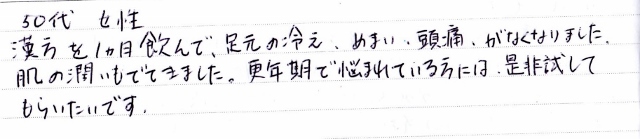 50代 女性
漢方を1ヵ月飲んで、足元の冷え、めまい、頭痛、がなくなりました。
肌の潤いもでてきました。更年期で悩まれている方には、是非試して
もらいたいです。